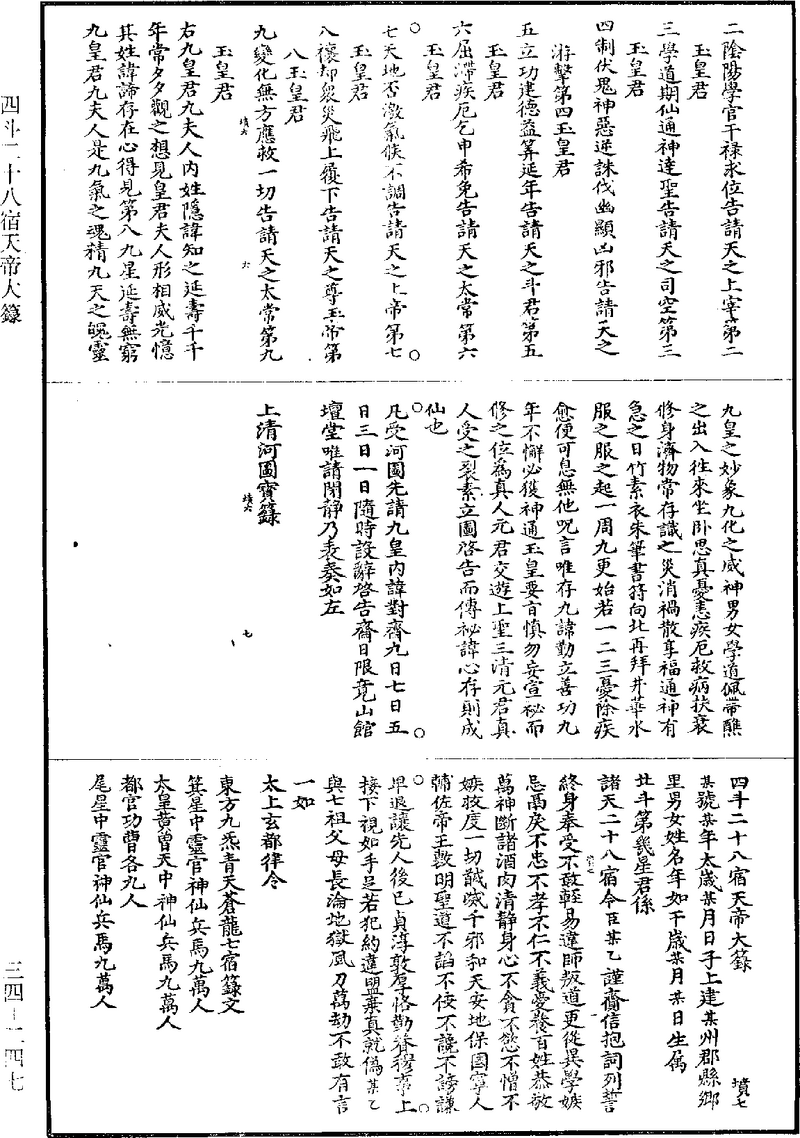 二陰陽學官干祿求位告請天之上宰第二
玉皇君
三學道期仙通神達聖告請天之司空第三
玉皇君
四制伏鬼神惡逆誅伐幽顯凶邪告請天之
游擊第四玉皇君
五立功建德益筭延年告請天之斗君第五
玉皇君
六屈滯疾厄乞申希免告請天之太常第六
玉皇君
七天地否激氣候不調告請天之上帝第七
玉皇君
八禳却衆災飛上履下告請天之尊玉帝第
八玉皇君
九變化無方應救一切告請天之太常第九
玉皇君
右九皇君九夫人內姓隱諱知之延壽千千
年常夕夕觀之想見皇君夫人形相威光憶
其姓諱諦存在心得見第八九星延壽無窮
九皇君九夫人是九氣之魂精九天之魄靈
九皇之妙象九化之威神男女學道佩帶醮
之出入往來坐卧思真憂恚疾厄救病扶衰
修身濟物常存識之災消禍散享福通神有
急之日竹素衣朱筆書符向北再拜井華水
服之服之起一周九更始若一二三憂除疾
愈便可息無他呪言唯存九諱勤立善功九
年不懈必獲神通玉皇要言慎勿妄宣祕而
修之位為真人元君交遊上聖三清元君真
人受之裂素立圖啓告而傳祕諱心存則成
仙也
凡受河圖先請九皇內諱對齋九日七日五
日三日一日隨時設辭啓告齋日限竟山館
壇堂唯請閑靜乃表奏如左
上清河圖寶籙
四斗二十八宿天帝大籙
墳七
某號某年太歲某月日子上建某州郡縣鄉
里男女姓名年如干歲某月某日生屬
北斗第幾星君係
諸天二十八宿令臣某乙謹齎信抱詞列誓
終身奉受不敢輕易違師叛道更從異學嫉
忌鬲戾不忠不孝不仁不義愛養百姓恭敬
萬神斷諸酒肉清靜身心不貪不慾不憎不
嫉救度一切誡滅千邪和天安地保國寧人
彌佐帝王敷明聖道不謟不佞不讒不謗謙
早退讓先人後己貞淳敦厚恪勤眷穆事上
接下視如手足若犯約違盟棄真就偽某乙
與七祖父母長淪地獄風刀萬劫不敢有言
一如
太上玄都律令
東方九炁青天蒼龍七宿籙文
箕星中靈官神仙兵馬九萬人
太皇黃曾天中神仙兵馬九萬人
都官功曹各九人
尾星中靈官神仙兵馬九萬人
四斗二十八宿天帝大籙
三四－二四七